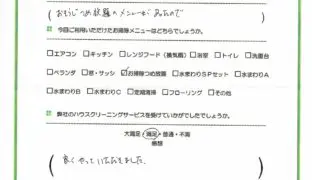 おそうじつめ放題のメニューが
今回ご利用いただいたお掃除メニューはどちらでしょうか。
□エアコン □キッチン □レンジフード（換気扇） □浴室 □トイレ □洗面台
□ベランダ □窓・サッシ ☑お掃除つめ放題 □水まわりSPセット □水まわりA
□水まわりB □水まわりC □定期清掃 □フローリング □その他
弊社のハウスクリーニングサービスを受けていかがでしたでしょうか。
大満足・満足・普通・不満
感想
良くやっていただきました。